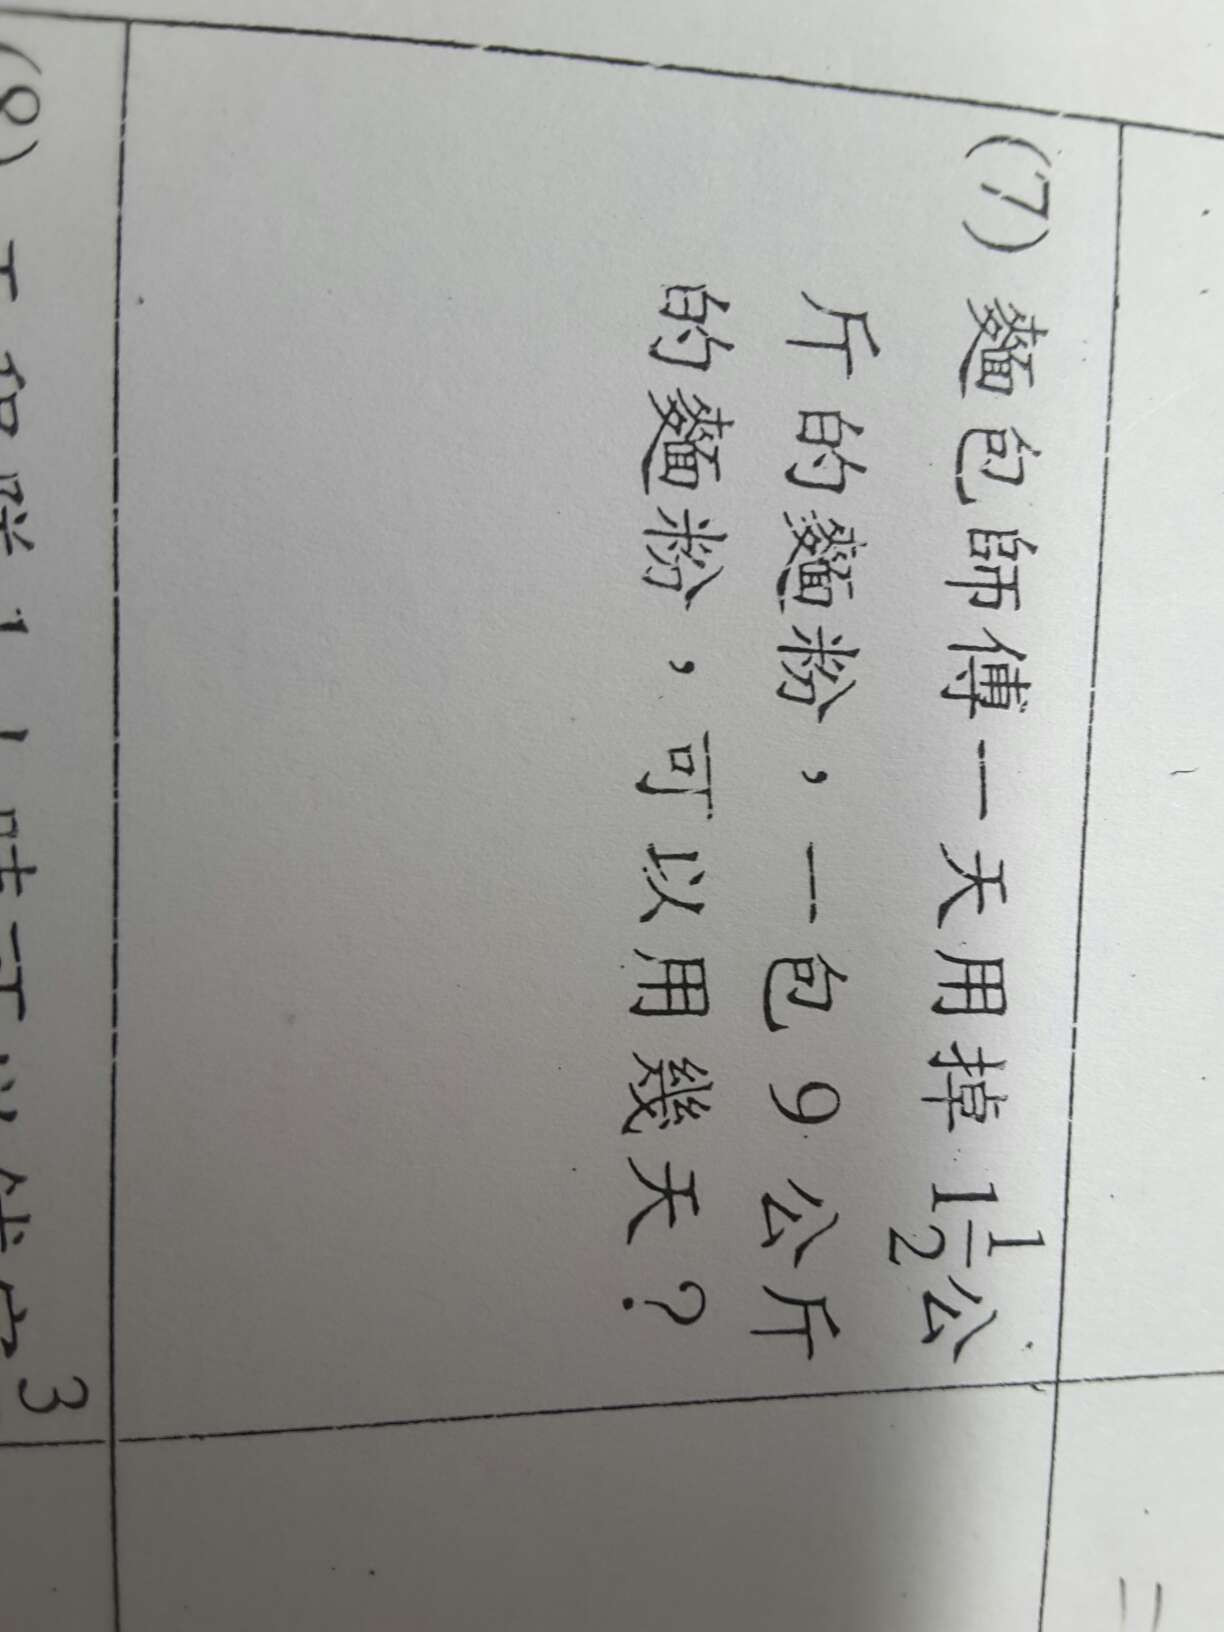 (7) 麵包師傅一天用掉 1 1/2 公
斤的麵粉，一包 9 公斤
的麵粉，可以用幾天？
(8)
3